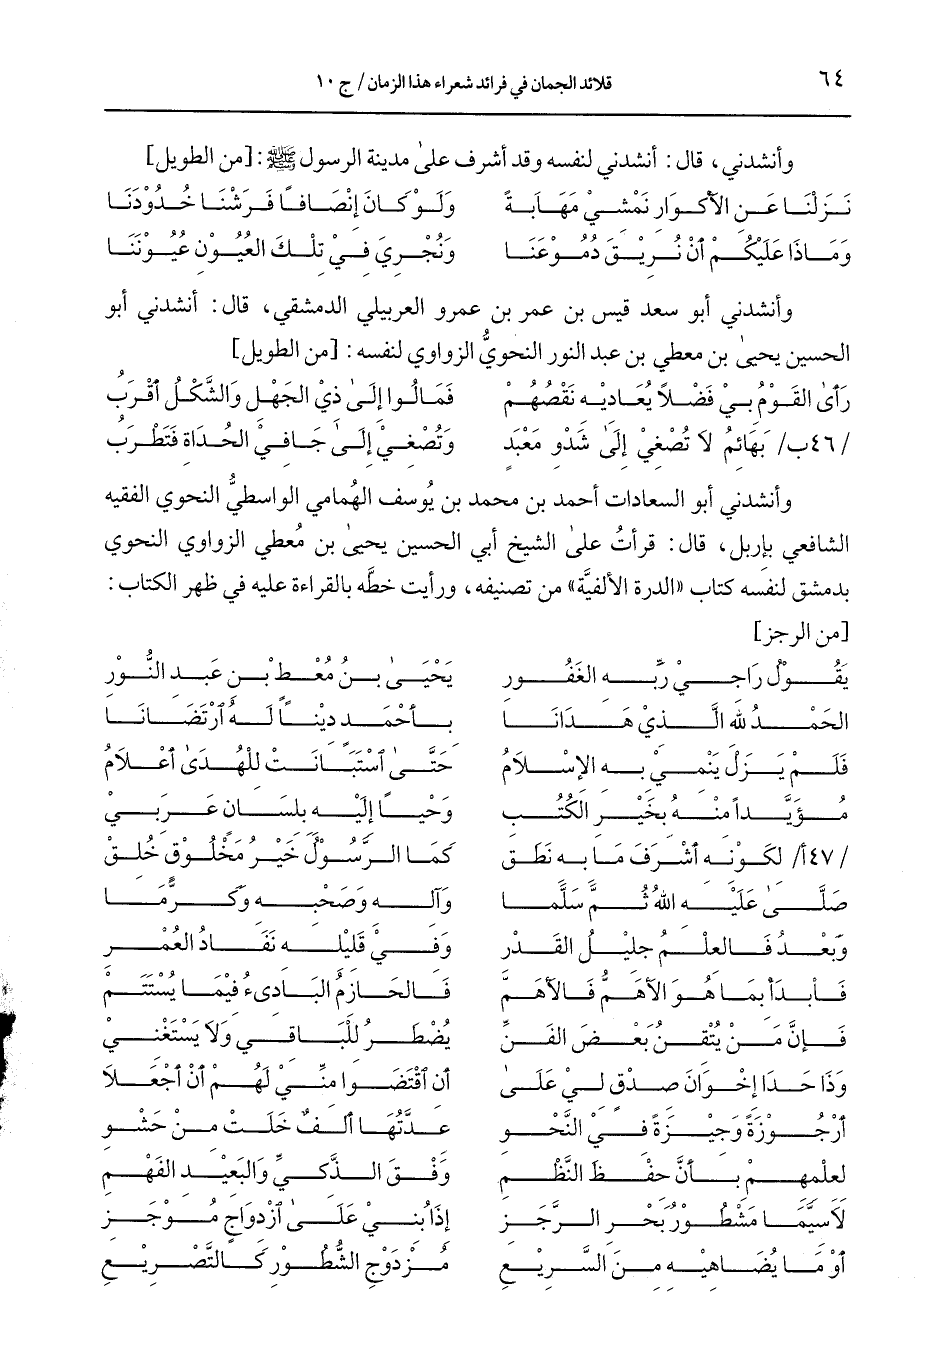 ٦٤ قلائد الجمان في فرائد شعراء هذا الزمان/ ج ١٠
وأنشدني، قال: أنشدني لنفسه وقد أشرف علىٰ مدينة الرسول ﷺ: [من الطويل]
نَزَلْنَا عَنِ الأكْوارِ نَمْشِيْ مَهَابَةً وَلَوْ كَانَ إنْصَافاً فَرَشْنَا خُدُوْدَنَا
وَمَاذَا عَلَيْكُمْ أنْ نُرِيْقَ دُمُوْعَنَا وَنُجْرِيَ فِيْ تِلْكَ العُيُوْنِ عُيُوْنَنَا
وأنشدني أبو سعد قيس بن عمر بن عمرو العربيلي الدمشقي، قال: أنشدني أبو
الحسين يحيىٰ بن معطي بن عبد النور النحويُّ الزواوي لنفسه: [من الطويل]
رَأىٰ القَوْمُ بِيْ فَضْلاً يُعَادِيهِ نَقْصُهُمْ فَمَالُوا إلَىٰ ذِيْ الجَهْلِ وَالشَّكْلُ أقْرَبُ
/٤٦ب/ بَهَائِمُ لاَ تُصْغِيْ إلَىٰ شَدْوِ مَعْبَدٍ وَتُصْغِيْ إلَىٰ جَافِي الحُدَاةِ فَتَطْرَبُ
وأنشدني أبو السعادات أحمد بن محمد بن يُوسف الهُمامي الواسطيُّ النحوي الفقيه
الشافعي بإربل، قال: قرأتُ علىٰ الشيخ أبي الحسين يحيىٰ بن مُعطي الزواوي النحوي
بدمشق لنفسه كتاب «الدرة الألفيَّة» من تصنيفه، ورأيت خطَّه بالقراءة عليه في ظهر الكتاب:
[من الرجز]
يَقُوْلُ رَاجِيْ رَبِّهِ الغَفُوْرِ يَحْيَىٰ بِنُ مُعْطِ بْنِ عَبدِ النُّوْرِ
الحَمْدُ للهِ الَّذِيْ هَدَانَا بِأحْمَدٍ دِيْناً لَهُ ٱرْتَضَانَا
فَلَمْ يَزَلْ يَنْمِيْ بِهِ الإسْلاَمُ حَتَّىٰ ٱسْتَبَانَتْ لِلْهُدَىٰ أعْلاَمُ
مُؤَيَّداً مِنْهُ بِخَيْرِ الكُتُبِ وَحْياً إلَيْهِ بِلِسَانٍ عَرَبِيْ
/٤٧أ/ لِكَوْنِهِ أشْرَفَ مَا بِهِ نَطَقْ كَمَا الرَّسُوْلُ خَيْرُ مَخْلُوْقٍ خُلِقْ
صَلَّىٰ عَلَيْهِ اللهُ ثُمَّ سَلَّمَا وَآلِهِ وَصَحْبِهِ وَكَرَّمَا
وَبَعْدُ فَالعِلْمُ جَلِيْلُ القَدْرِ وَفِيْ قَلِيْلِهِ نَفَادُ العُمْرِ
فَابْدَأ بِمَا هُوَ الأهَمُّ فَالأهَمّْ فَالحَازِمُ البَادِىءُ فِيْمَا يُسْتَتَمّْ
فَإنَّ مَنْ يُتْقِنُ بَعْضَ الفَنِّ يُضْطَرُّ لِلْبَاقِي وَلاَ يَسْتَغْنِيْ
وَذَا حَدَا إخْوَانَ صِدْقٍ لِيْ عَلَىٰ أنِ ٱقْتَضَوا مِنِّيْ لَهُمْ أنْ أجْعَلاَ
أرْجُوْزَةً وَجِيْزَةً فِي النَّحْوِ عِدَّتُهَا ألْفٌ خَلَتْ مِنْ حَشْوِ
لِعِلْمِهِمْ بِأنَّ حِفْظَ النَّظْمِ وَفْقَ الذَّكِيِّ وَالبَعِيْدِ الفَهْمِ
لاَسِيَّمَا مَشْطُورُ بَحْرِ الرَّجَزِ إذَا بُنِيْ عَلَىٰ ٱزْدِوَاجٍ مُوْجَزِ
أوْ مَا يُضَاهِيْهِ مِنَ السَّرِيْعِ مُزْدَوْجِ الشُّطُوْرِ كَالتَّصْرِيْعِ